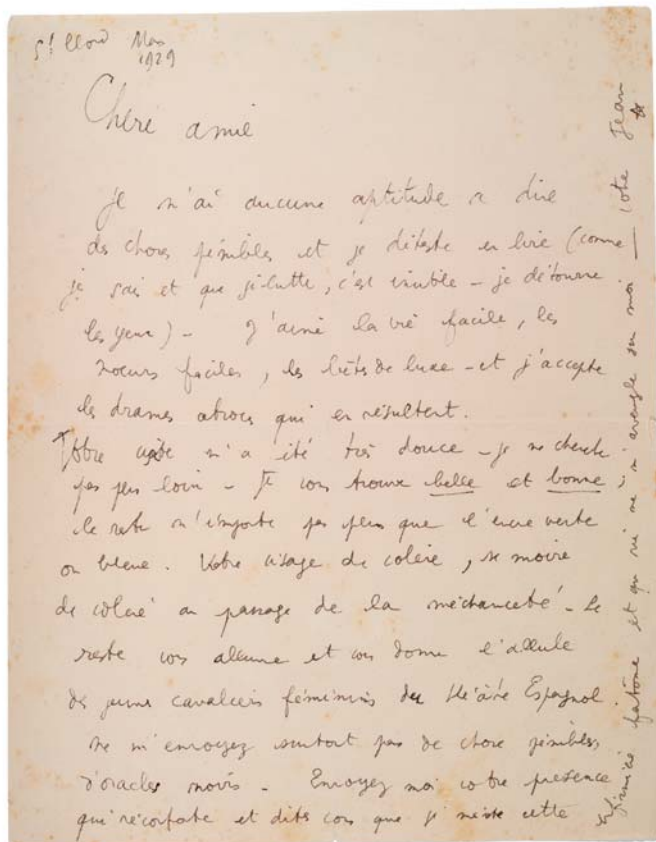 St Cloud Mars
1929
Chère amie
Je n'ai aucune aptitude a dire
des choses pénibles et je déteste en lire (comme
je sais et que je lutte, c'est inutile – je détourne
les yeux) – J'aime la vie facile, les
moeurs faciles, les bêtes de luxe – et j'accepte
les drames atroces qui en résultent.
Votre visite m'a été très douce – je ne cherche
pas plus loin – Je vous trouve belle et bonne,
le reste n'importe pas plus que l'encre verte
ou bleue. Votre visage de colère, se moire
de colère au passage de la méchanceté – Le
reste vous allume et vous donne l'allure
des jeunes cavaliers féminins du théâtre Espagnol.
ne m'envoyez surtout pas de chose pénibles,
d'oracles noirs – Envoyez moi votre présence
qui réconforte et dites vous que je mérite cette
infirmité fantôme et qu rie ne m'aveugle sur moi – votre Jean